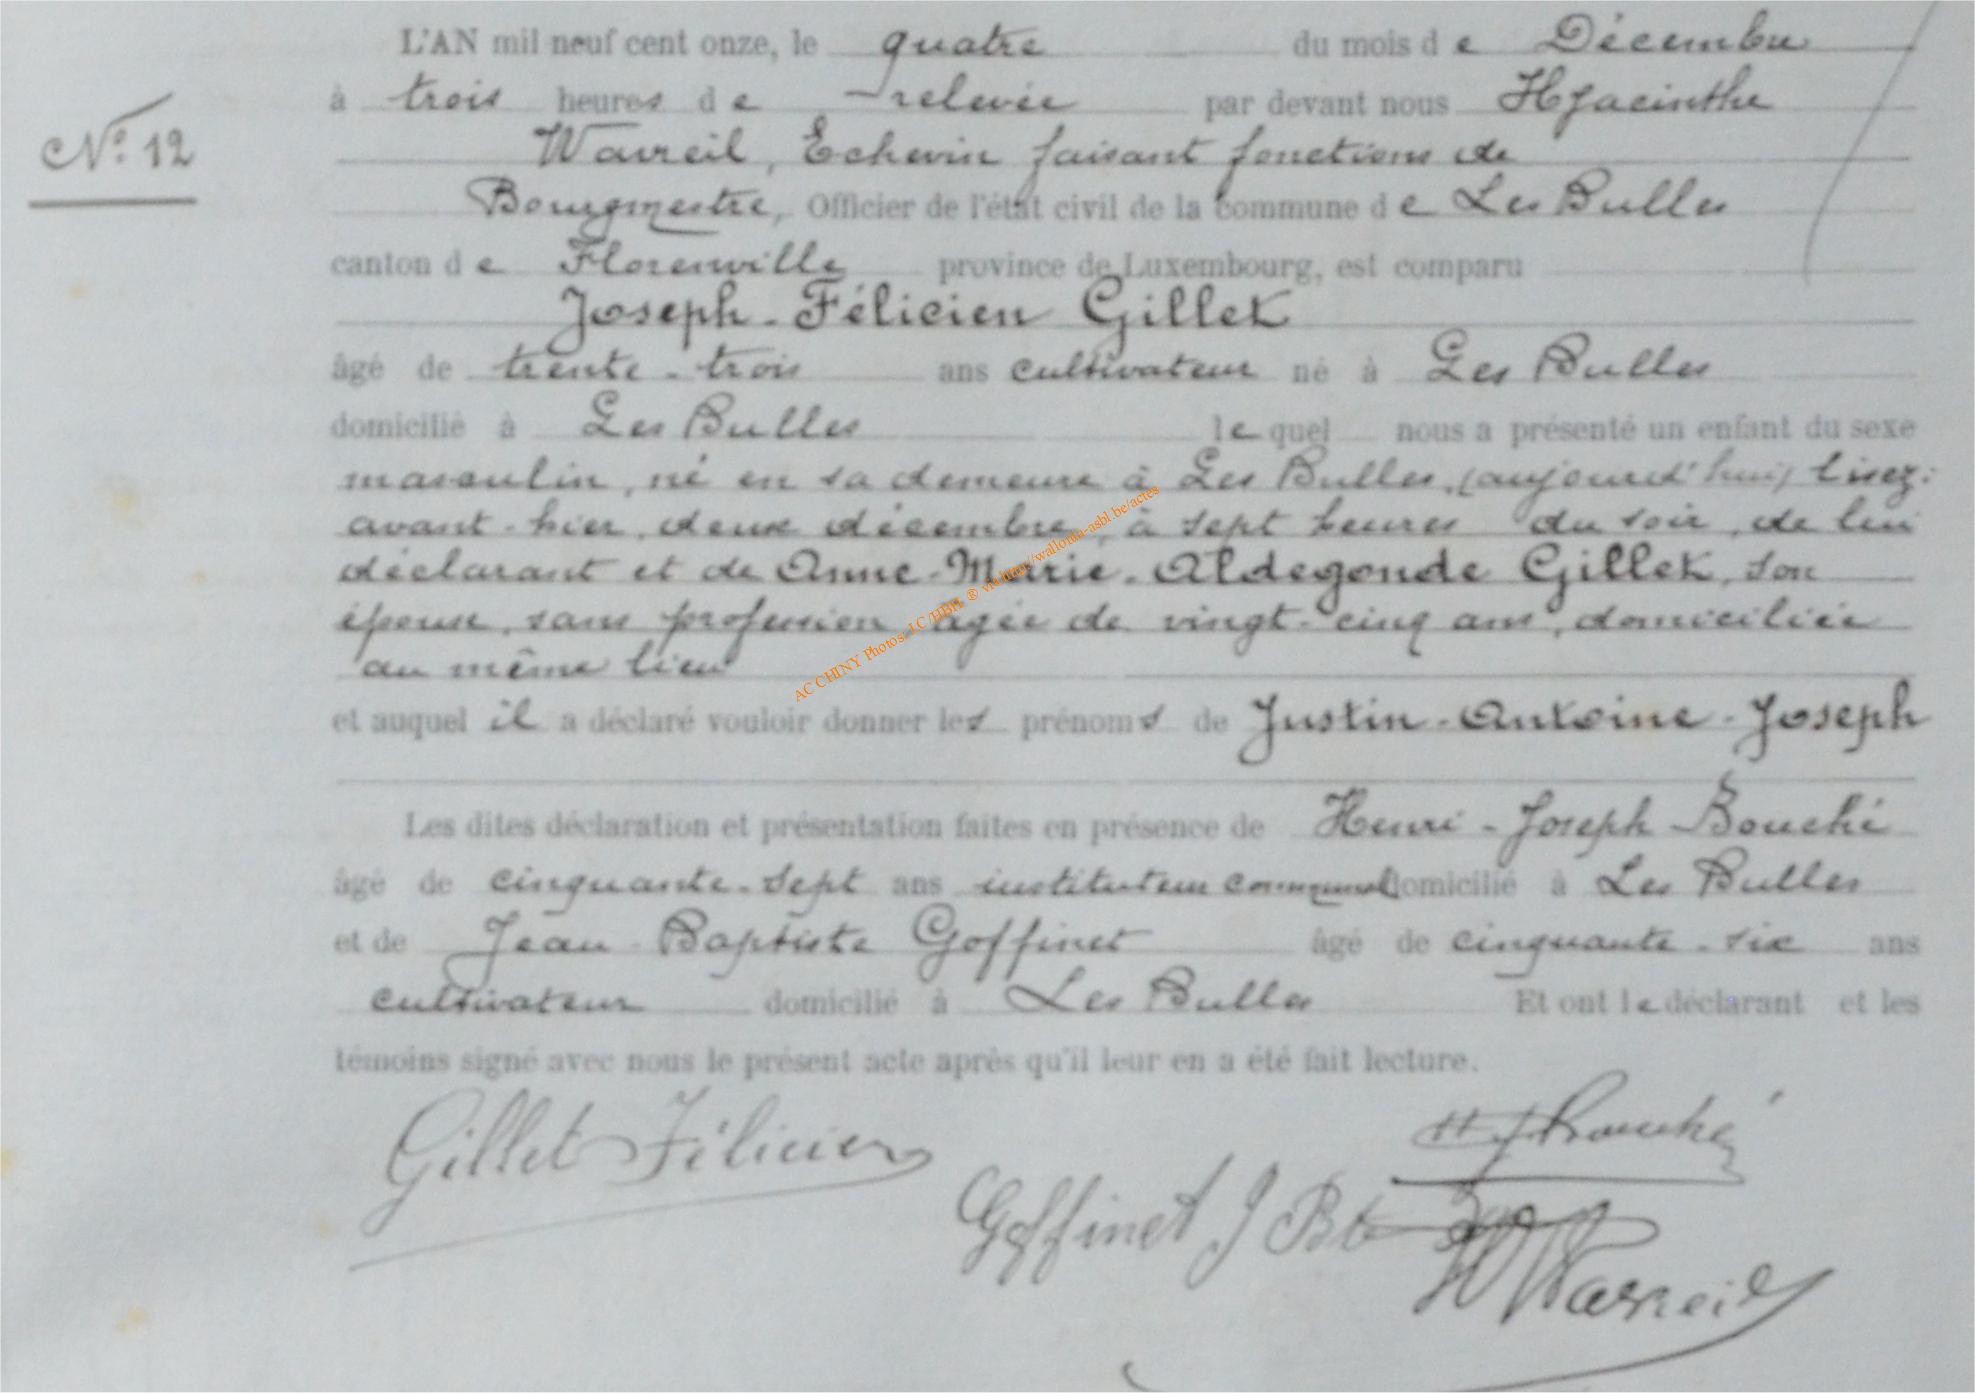 L'AN mil neuf cent onze, le quatre du mois de Décembre
à trois heures de relevée par devant nous Hyacinthe
N° 12
Wavreil, Echevin faisant fonctions de
Bourgmestre, Officier de l'état civil de la commune de Les Bulles
canton de Florenville province de Luxembourg, est comparu
Joseph-Félicien Gillet
âgé de trente-trois ans cultivateur né à Les Bulles
domicilié à Les Bulles lequel nous a présenté un enfant du sexe
masculin, né en sa demeure à Les Bulles, (aujourd'hui) lisez:
avant-hier, deux décembre, à sept heures du soir, de lui
déclarant et de Anne-Marie-Aldegonde Gillet, son
épouse, sans profession âgée de vingt-cinq ans, domiciliée
au même lieu
et auquel il a déclaré vouloir donner les prénoms de Justin-Antoine-Joseph
Les dites déclaration et présentation faites en présence de Henri-Joseph Bouché
âgé de cinquante-sept ans instituteur communal domicilié à Les Bulles
et de Jean Baptiste Goffinet âgé de cinquante-six ans
cultivateur domicilié à Les Bulles Et ont le déclarant et les
témoins signé avec nous le présent acte après qu'il leur en a été fait lecture.
Gillet Félicien
H J Bouché
Goffinet J Bte
H Wavreil
AC CHINY Photos J.C/HBH. ® via http//wallonia-asbl.be/actes